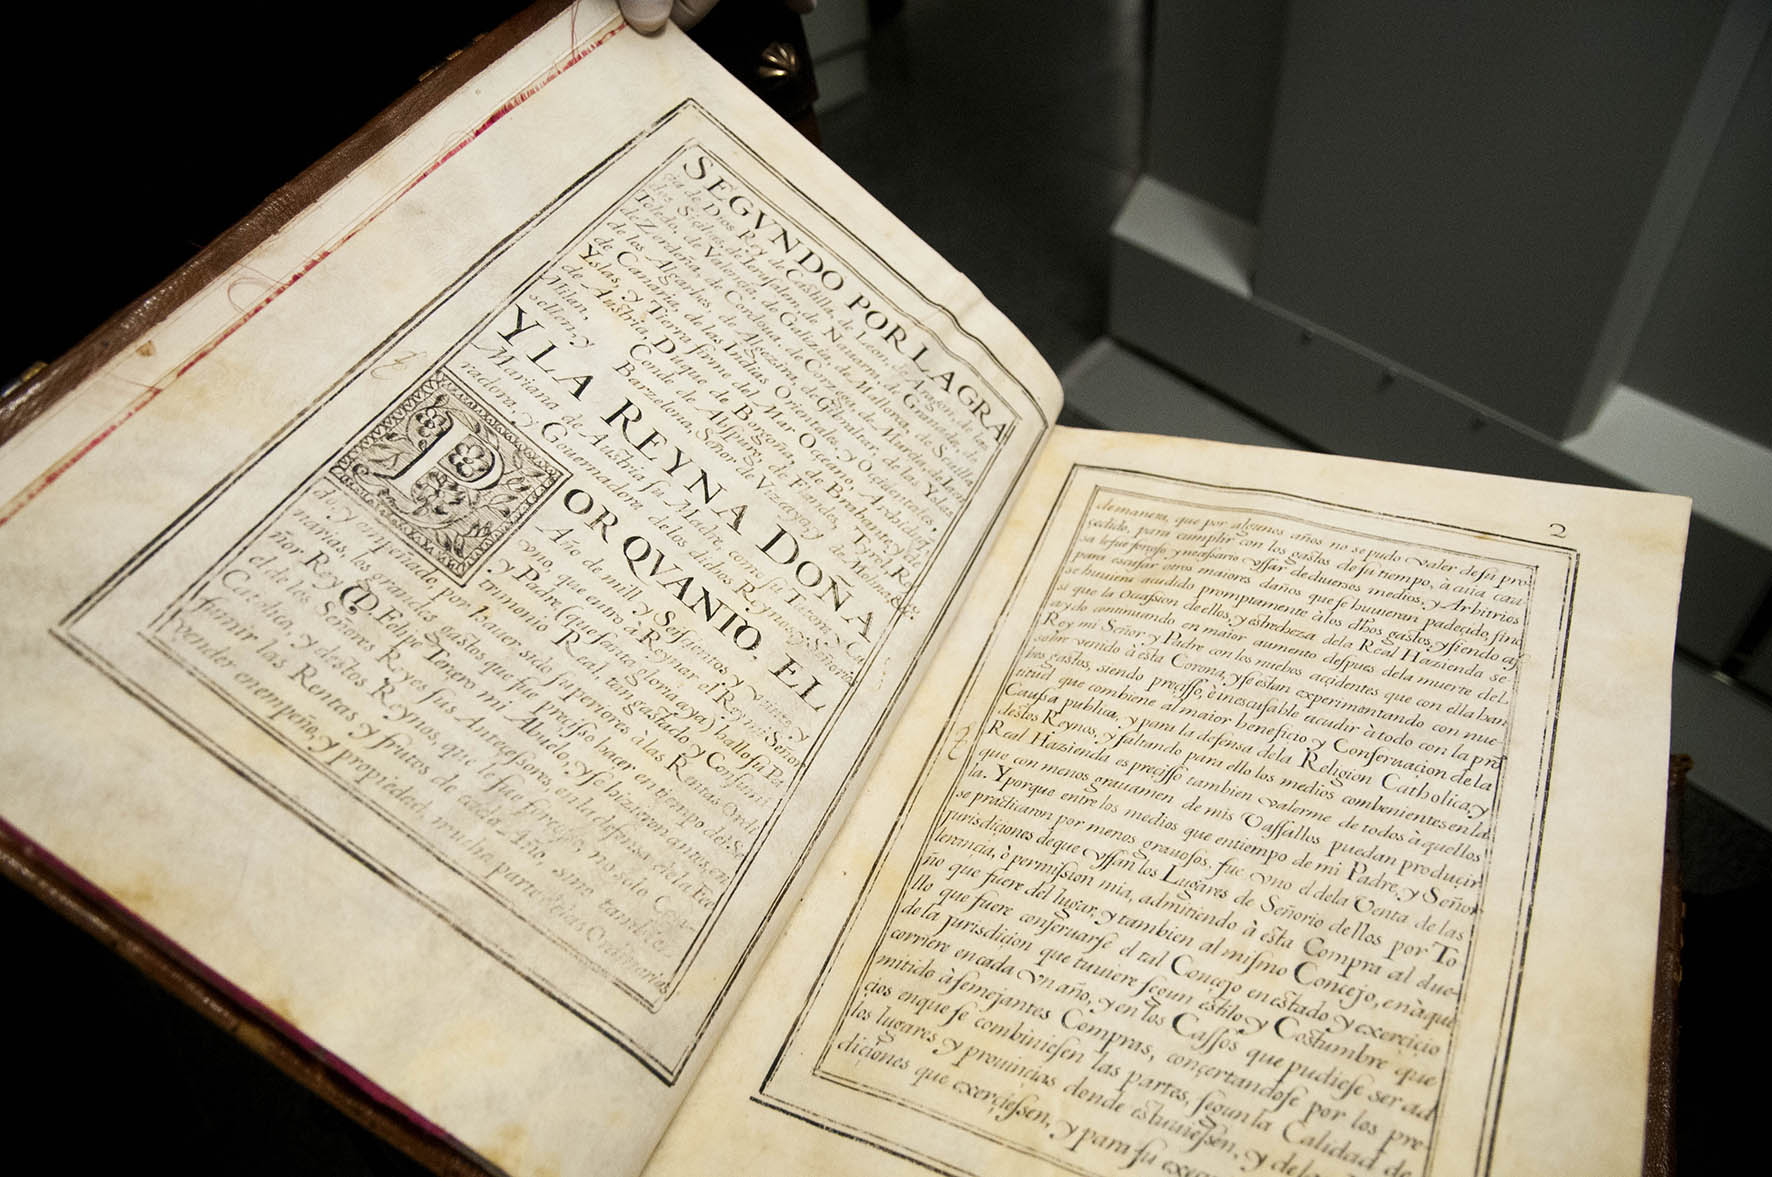 SEGVNDO POR LA GRA
cia de Dios Rey de Castilla, de Leon, de Aragon, de las
dos Siçilias, de Ierusalem, de Nauarra, de Granada, de
Toledo, de Valencia, de Galiçia, de Mallorca, de Seuilla,
de Zerdeña, de Cordoua, de Corzega, de Murcia, de Iaen,
de los Algarbes, de Algezira, de Gibraltar, de las Yslas
de Canaria, de las Indias Orientales, y Ocçidentales,
Yslas, y Tierra firme del Mar Occeano, Archiduque
de Austria, Duque de Borgoña, de Brabante, y de
Milan, Conde de Abspurg, de Flandes, Tyrol,
Barzelona, Señor de Vizcaya, y de Molina
Y LA REYNA DOÑA
Mariana de Austria su Madre, como su Tutora, y Cu
radora, y Gouernadora de los dichos Reynos, y Señorios
POR QVANTO. EL
Año de mill y Seisçientos y veinte, y
vno, que entro à Reynar el Rey mi Señor
y Padre, (que santa gloria aya) hallo su Pa
trimonio Real, tan gastado, y Consumi
do, y empeñado, por hauer sido superiores à las Rentas Ordi
narias, los grandes gastos que fue preçisso hacer en tiempo del Se
ñor Rey D. Felipe Terçero mi Abuelo, y se hizieron antes, en
el de los Señores Reyes sus Anteçesores, en la defensa de la Fee
Catolica, y destos Reynos, que le fue forçoso, no solo Consu
mir las Rentas y frutos de cada Año, sino tambien
vender en empeño, y propiedad, mucha parte de las Ordinarias
2
de manera, que por algunos años no se pudo valer de su pro
çedido, para cumplir con los gastos de su tiempo, à cuia cau
sa le fue forçoso y neçesario vssar de diuersos medios, y Arbitrios
para escusar otros maiores daños que se huuieran padecido, sino
se huuiera acudido promptamente à los dhos gastos, y siendo as
si que la Ocassion de ellos, y estrecheza de la Real Hazienda se
a ydo continuando en maior aumento despues de la muerte del
Rey mi Señor y Padre con los nuebos accidentes que con ella han
sobre venido à esta Corona, y se estan experimentando con nue
bos gastos, siendo preçisso, è inescusable acudir à todo con la pro
titud que combiene al maior beneficio y Conseruacion de la
Caussa publica, y para la defensa de la Religion Catholica, y
destos Reynos, y faltando para ello los medios combenientes en la
Real Hazienda es preçisso tambien valerme de todos à quellos
que con menos grauamen de mis Vassallos puedan produçir
la. Y porque entre los medios que en tiempo de mi Padre, y Señor
se practicaron por menos grauosos, fue vno el de la Venta de las
jurisdiciones de que vssan los Lugares de Señorio dellos por To
lerancia, ò permission mia, admitiendo à esta Compra al due
ño que fuere del lugar, y tambien al mismo Concejo, en à que
llo que fuere conseruarse el tal Concejo en estado y exerçiçio
de la jurisdicion que tuuiere segun estilo, y Costumbre que
corriere en cada vn año, y en los Cassos que pudiese ser ad
mitido à semejantes Compras, conçertandose por los pre
çios en que se combiniesen las partes, segun la Calidad de
los lugares y prouinçias donde estuuiessen, y de la
diçiones que exerçiessen, y para su exe